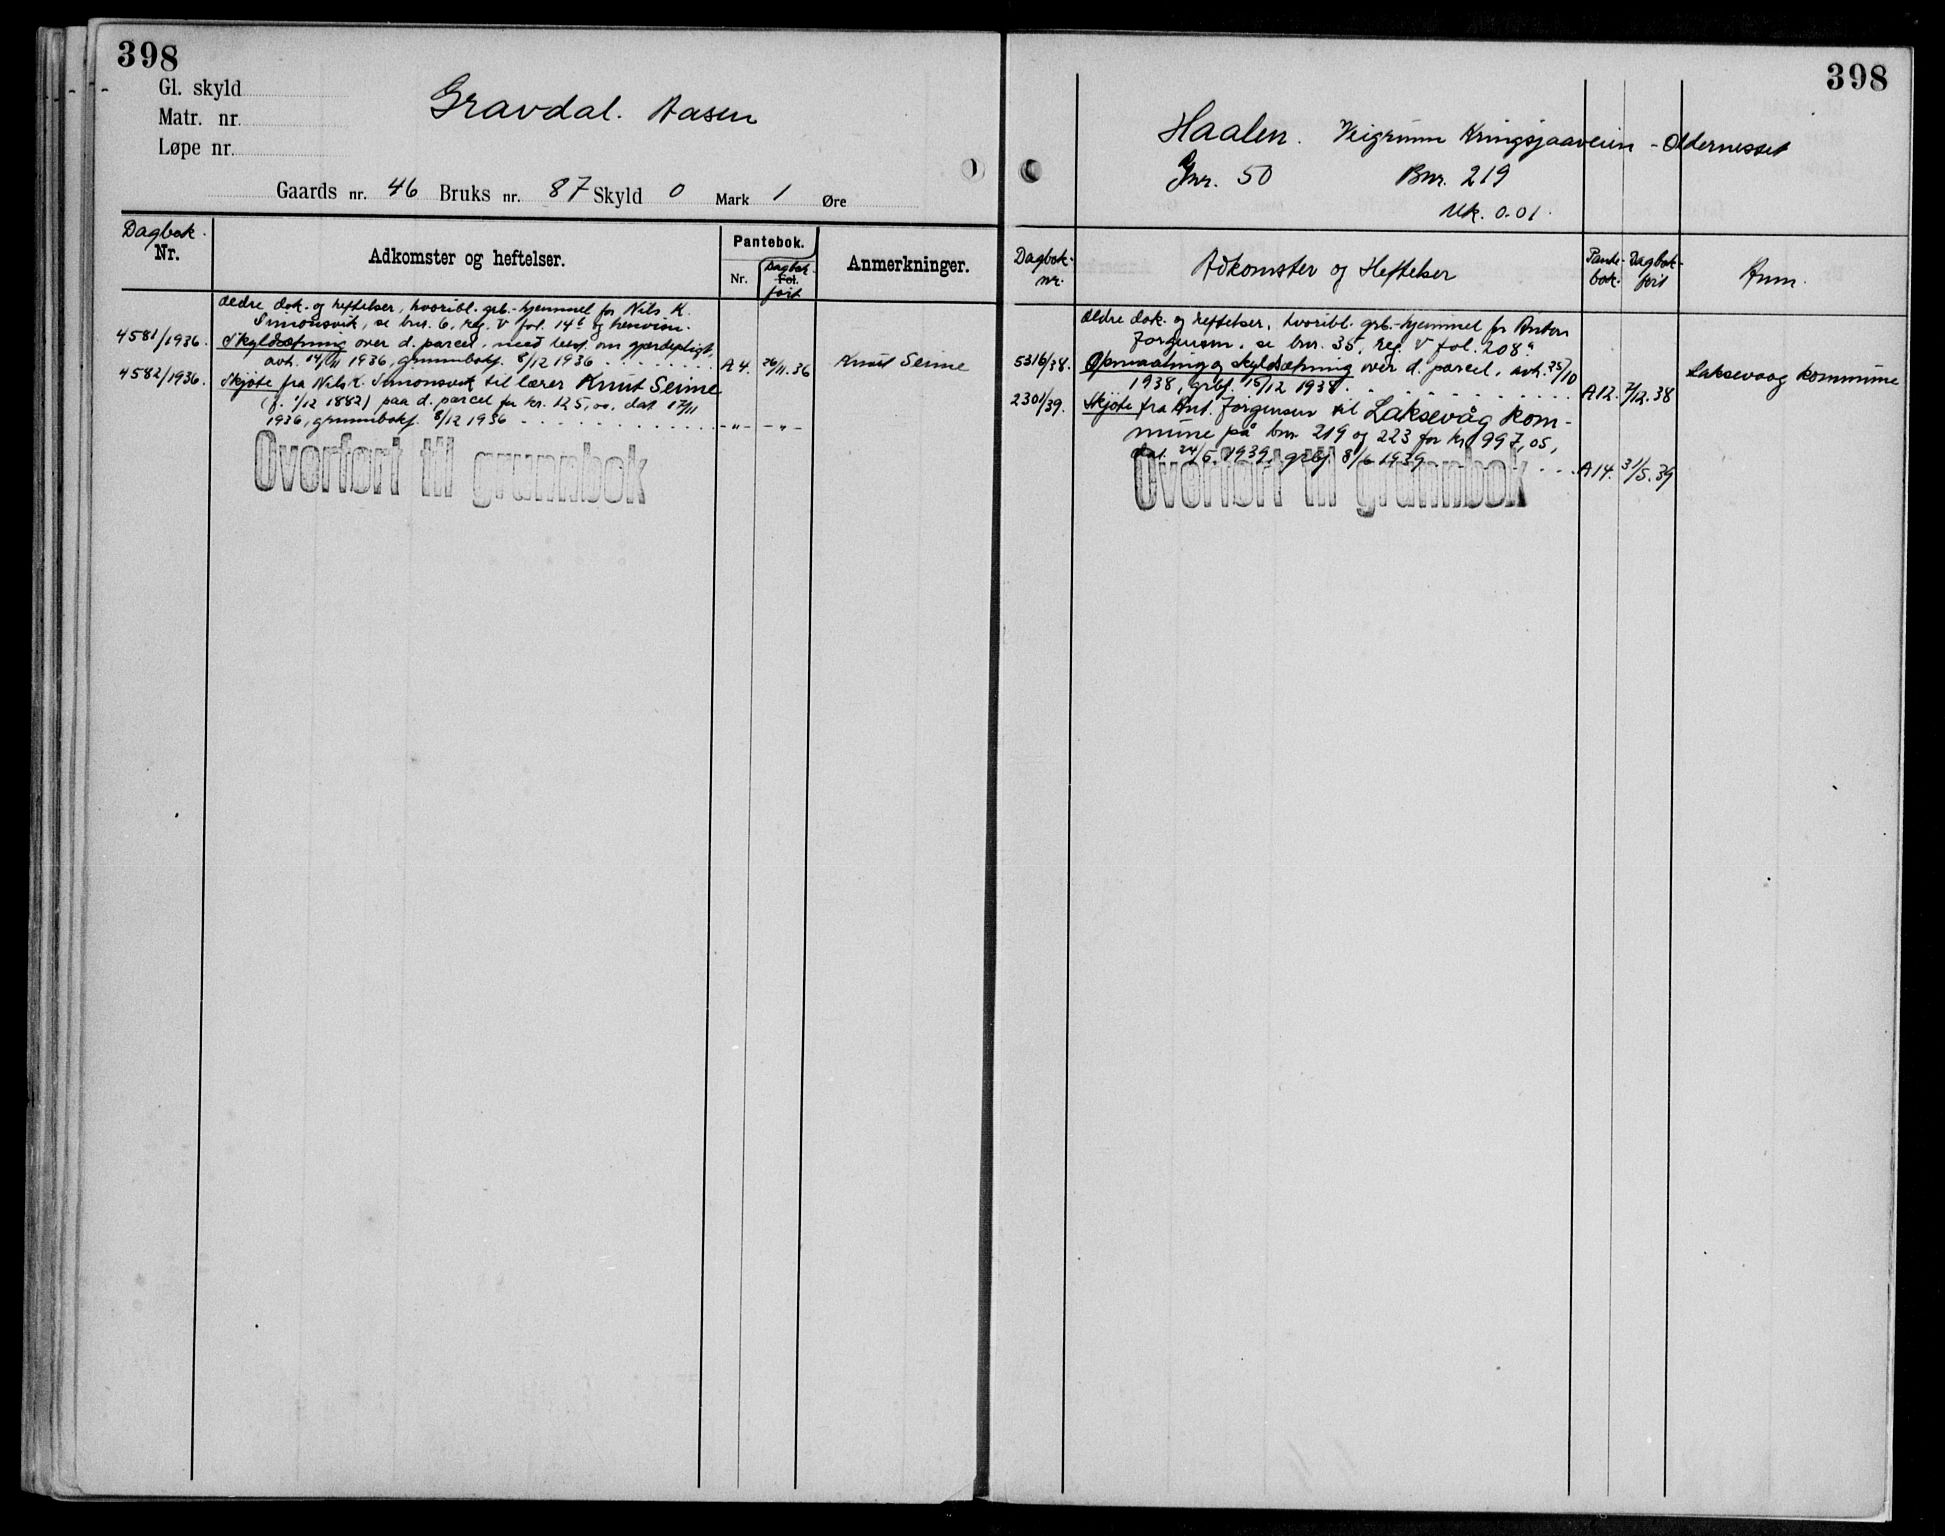 398
Gl. skyld
Matr. nr.
Løpe nr.
Gravdal. Aasen
Gaards nr. 46 Bruks nr. 87 Skyld 0 Mark 1 Øre
Dagbok.
Nr.
Adkomster og heftelser.
Pantebok.
Nr.
Dagbok.
Fol.
ført
Anmerkninger.
Ældre dok. og heftelser, hvoribl. grb.-hjemmel for Nils K.
Simonsvik, se bnr. 6, reg. V fol. 14b og henvisn.
4581/1936. Skyldsætning over d. parcel, med best. om gjerdepligt,
avh. 14/11 1936, grunnbokf. 8/12 1936 . . . . . . . A 4. 26/11. 36 Knut Seime
4582/1936. Skjøte fra Nils K. Simonsvik til lærer Knut Seime
(f. 1/12 1882) paa d. parcel for kr. 125,00, dat 17/11
1936, grunnbokf. 8/12 1936 . . . . . . . . . . . -"- -"-
Overført til grunnbok
398
Haalen. Veigrunn Kringsjaaveien - Oldernesset
Gnr. 50 Bnr. 219
Mk. 0.01.
Dagbok-
nr.
Adkomster og Heftelser
Pante-
bok.
Dagbok-
ført
Anm.
Ældre dok. og heftelser, hvoribl. grb.-hjemmel for Anton
Jørgensen, se bnr. 35, reg. V fol. 208a
5316/38. Opmaaling og skyldsætning over d. parcel, avh. 25/10
1938, grbf. 15/12 1938 . . . . . . . . . . A12. 7/12. 38 Laksevaag kommune
2301/39. Skjøte fra Ant. Jørgensen til Laksevåg kom-
mune på bnr 219 og 223 for kr 997,05,
dat. 24/5 1939, grbf 8/6 1939 . . . A14. 31/5. 39
Overført til grunnbok